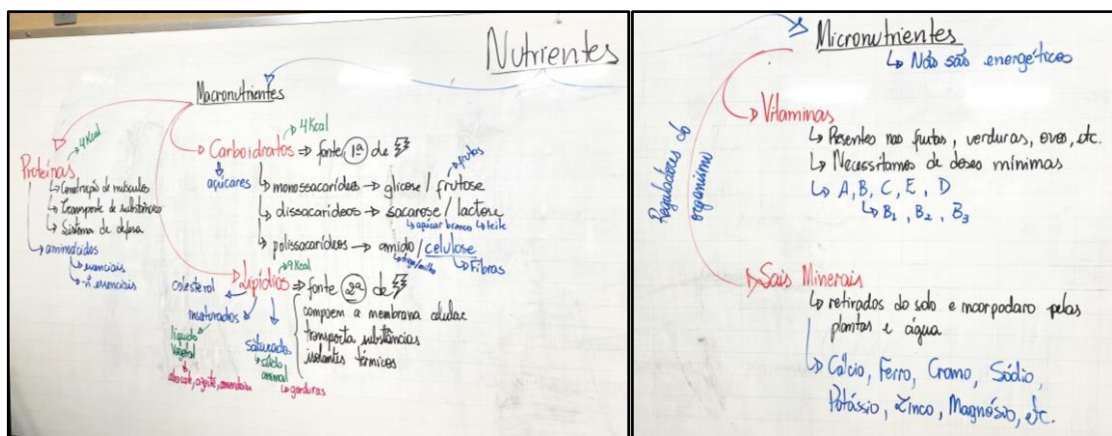 Nutrientes
Macronutrientes
4Kcal
Proteínas
↳ Construção de músculos
↳ Transporte de substâncias
↳ Sistema de defesa
↳ aminoácidos
↳ essenciais
↳ ñ essenciais
4Kcal
Carboidratos ⇒ fonte 1ª de
açúcares
frutas
↳ monossacarídeos → glicose / frutose
↳ dissacarídeos → sacarose / lactose
↳ açúcar branco ↳ leite
↳ polissacarídeos → amido / celulose
↳ Fibras
9Kcal
Lipídios ⇒ fonte 2ª de
colesterol
insaturados
líquido
vegetal
abacate, azeite, amendoim
saturados
↳ sólido
animal
↳ gorduras
compõem a membrana celular
transporta substâncias
isolantes térmicos
Micronutrientes
↳ Não são energéticos
Reguladores do
organismo
Vitaminas
↳ Presentes nas frutas, verduras, ovos, etc.
↳ Necessitamos de doses mínimas
↳ A, B, C, E, D
↳ B1, B2, B3
Sais Minerais
↳ retirados do solo e incorporado pelas
plantas e água
↳ Cálcio, Ferro, Cromo, Sódio,
Potássio, Zinco, Magnésio, etc.